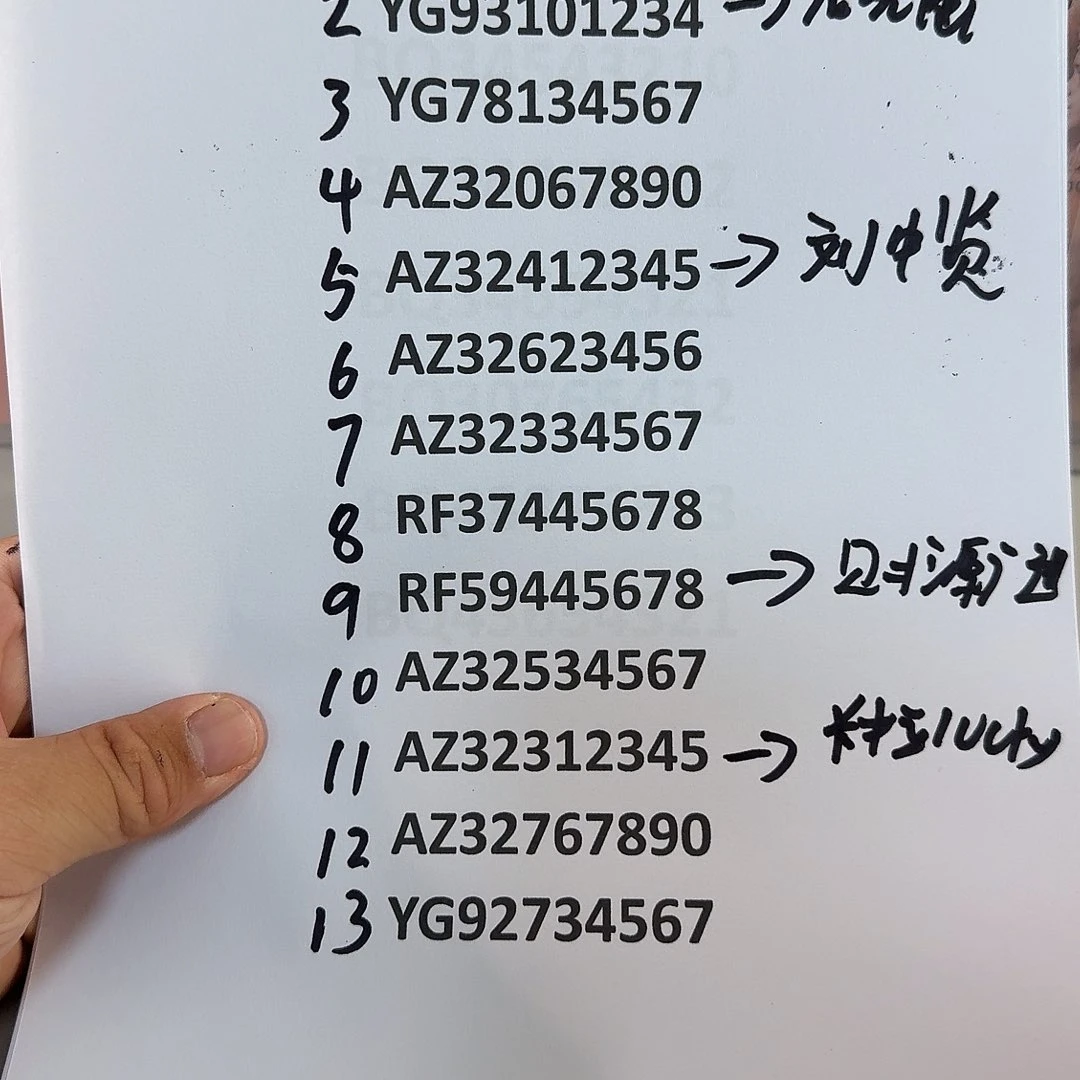 2 YG93101234 →
3 YG78134567
4 AZ32067890
5 AZ32412345 → 刘中贤
6 AZ32623456
7 AZ32334567
8 RF37445678
9 RF59445678 →
10 AZ32534567
11 AZ32312345 →
12 AZ32767890
13 YG92734567